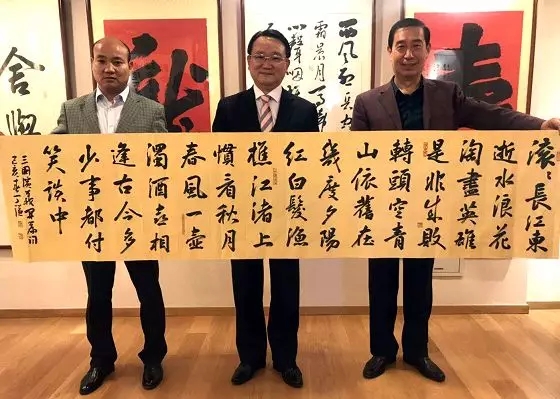 滚〻長江東
逝水浪花
淘盡英雄
是非成敗
轉頭空青
山依舊在
幾度夕陽
紅白髮漁
樵江渚上
慣看秋月
春風一壺
濁酒喜相
逢古今多
少事都付
笑談中
西風烈長
霜晨月馬
龍